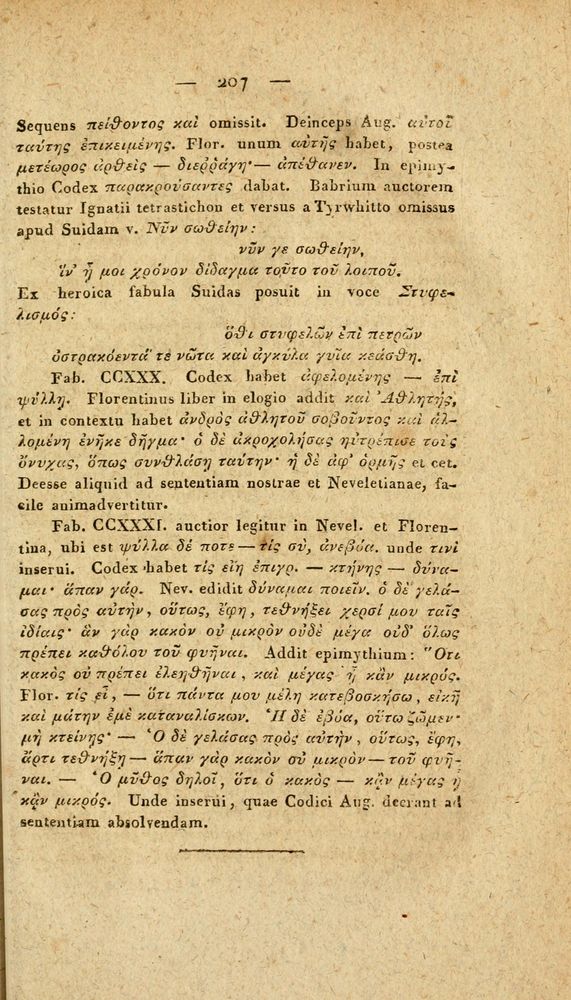 — 207 —
Sequens πείθοντος καὶ omissit. Deinceps Aug. αὐτοῦ
ταύτης ἐπικειμένης. Flor. unum αὐτῆς habet, postea
μετέωρος ἀρθεὶς — διεῤῥάγη· — ἀπέθανεν. In epimy-
thio Codex παρακρούσαντες dabat. Babrium auctorem
testatur Ignatii tetrastichon et versus a Tyrwhitto omissus
apud Suidam v. Νῦν σωθείην:
νῦν γε σωθείην,
ἵν᾽ ᾖ μοι χρόνον δίδαγμα τοῦτο τοῦ λοιποῦ.
Ex heroica fabula Suidas posuit in voce Στυφε-
λισμός:
ὅθι στυφελῶν ἐπὶ πετρῶν
ὀστρακόεντά τε νῶτα καὶ ἀγκύλα γυῖα κεάσθη.
Fab. CCXXX. Codex habet ἀφελομένης — ἐπὶ
ψύλλῃ. Florentinus liber in elogio addit καὶ Ἀθλητής,
et in contextu habet ἀνδρὸς ἀθλητοῦ σοβοῦντος καὶ ἁλ-
λομένη ἐνῆκε δῆγμα· ὁ δὲ ἀκροχολήσας ηὐτρέπισε τοὺς
ὄνυχας, ὅπως συνθλάσῃ ταύτην· ἡ δὲ ἀφ᾽ ὁρμῆς et cet.
Deesse aliquid ad sententiam nostrae et Neveletianae, fa-
cile animadvertitur.
Fab. CCXXXI. auctior legitur in Nevel. et Floren-
tina, ubi est ψύλλα δέ ποτε — τίς σύ, ἀνεβόα. unde τινὶ
inserui. Codex habet τίς εἴη ἐπιγρ. — κτήνης — δύνα-
μαι· ἅπαν γάρ. Nev. edidit δύναμαι ποιεῖν. ὁ δὲ γελά-
σας πρὸς αὐτὴν, οὕτως, ἔφη, τεθνήξει χερσί μου ταῖς
ἰδίαις· ἂν γὰρ κακὸν οὐ μικρὸν οὐδὲ μέγα οὐδ᾽ ὅλως
πρέπει καθόλου τοῦ φυῆναι. Addit epimythium: Ὅτι
κακὸς οὐ πρέπει ἐλεηθῆναι, καὶ μέγας ᾖ κἂν μικρός.
Flor. τίς εἶ, — ὅτι πάντα μου μέλη κατεβοσκήσω, εἰκῆ
καὶ μάτην ἐμὲ καταναλίσκων. Ἡ δὲ ἐβόα, οὕτω ζῶμεν·
μὴ κτείνῃς· — Ὁ δὲ γελάσας πρὸς αὐτὴν, οὕτως, ἔφη,
ἄρτι τεθνήξῃ — ἅπαν γὰρ κακὸν οὐ μικρὸν — τοῦ φυῆ-
ναι. — Ὁ μῦθος δηλοῖ, ὅτι ὁ κακὸς — κᾂν μέγας ᾖ
κᾂν μικρός. Unde inserui, quae Codici Aug. deerant ad
sententiam absolvendam.